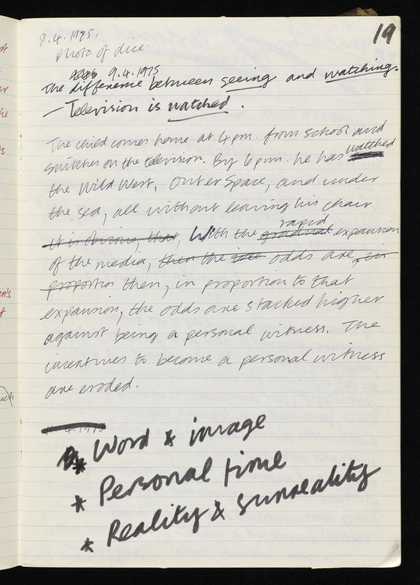 19
9.4.1975.
Photo of dice
9.4.1975
The difference between seeing and watching.
— Television is watched.
The child comes home at 4pm. from school and
switches on the television. By 6pm. he has watched
the Wild West, Outer Space, and under
the sea, all without leaving his chair
It is obvious that, With the gradual rapid expansion
of the media, then the odds are, in
proportion then, in proportion to that
expansion, the odds are stacked higher
against being a personal witness. The
incentives to become a personal witness
are eroded.
* Word & image
* Personal time
* Reality & surreality